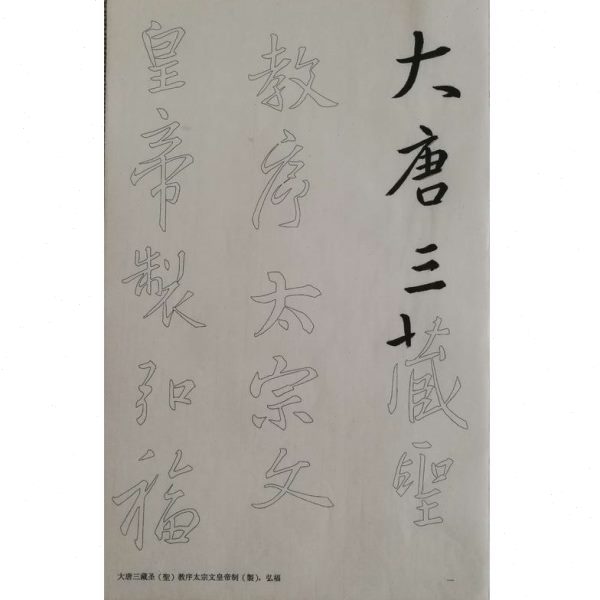 大唐三藏聖
教序太宗文
皇帝製弘福
大唐三藏圣（聖）教序太宗文皇帝制（製）。弘福
一